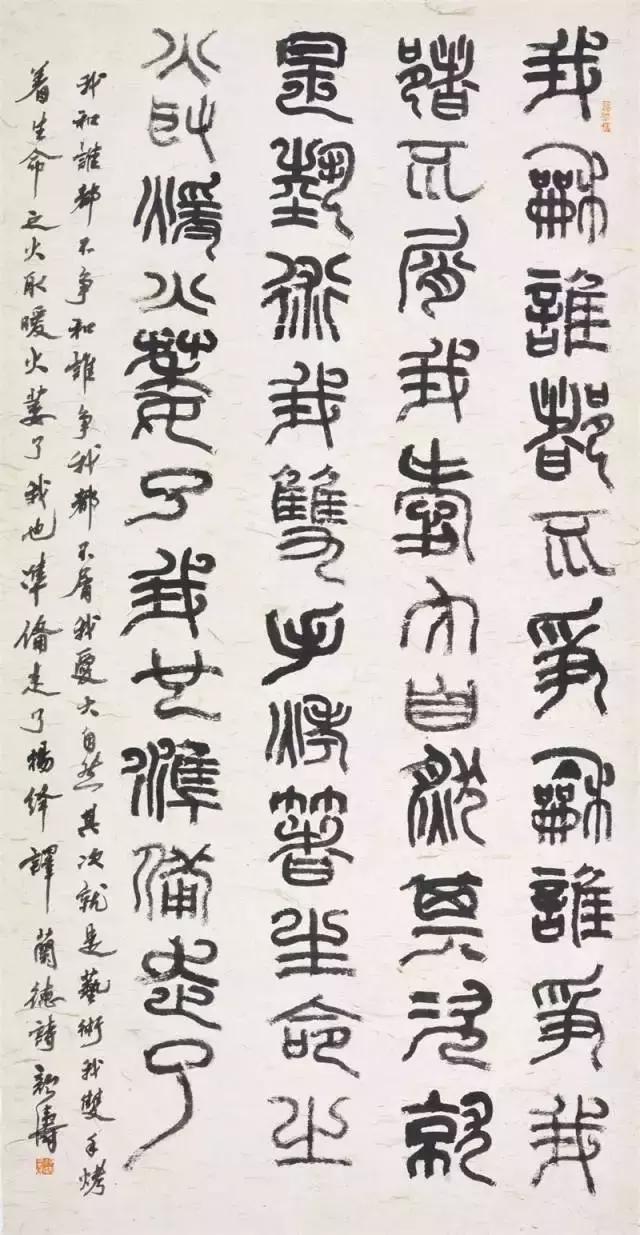 我龢誰都不爭龢誰爭我
都不屑我愛大自然其次就
是藝術我雙手烤箸生命之
火取暖火萎了我也準備走了
我和誰都不争和誰争我都不屑我愛大自然其次就是藝術我雙手烤
着生命之火取暖火萎了我也準備走了楊绛譯蘭德詩